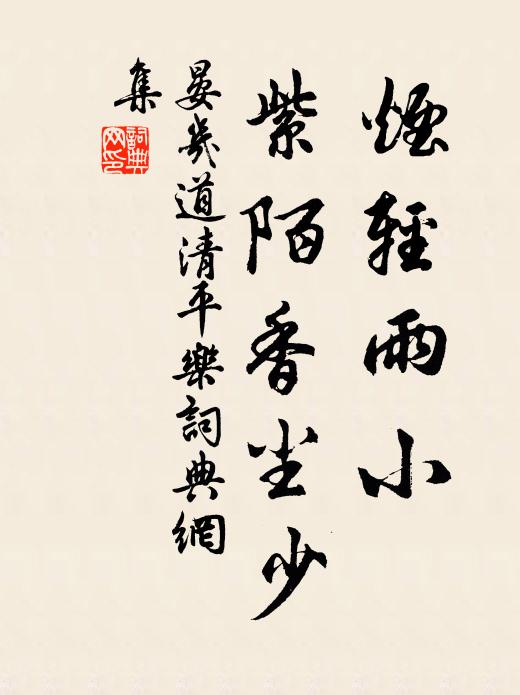 煙輕雨小
紫陌香尘少
晏幾道清平樂詞典網
集
詞典網印